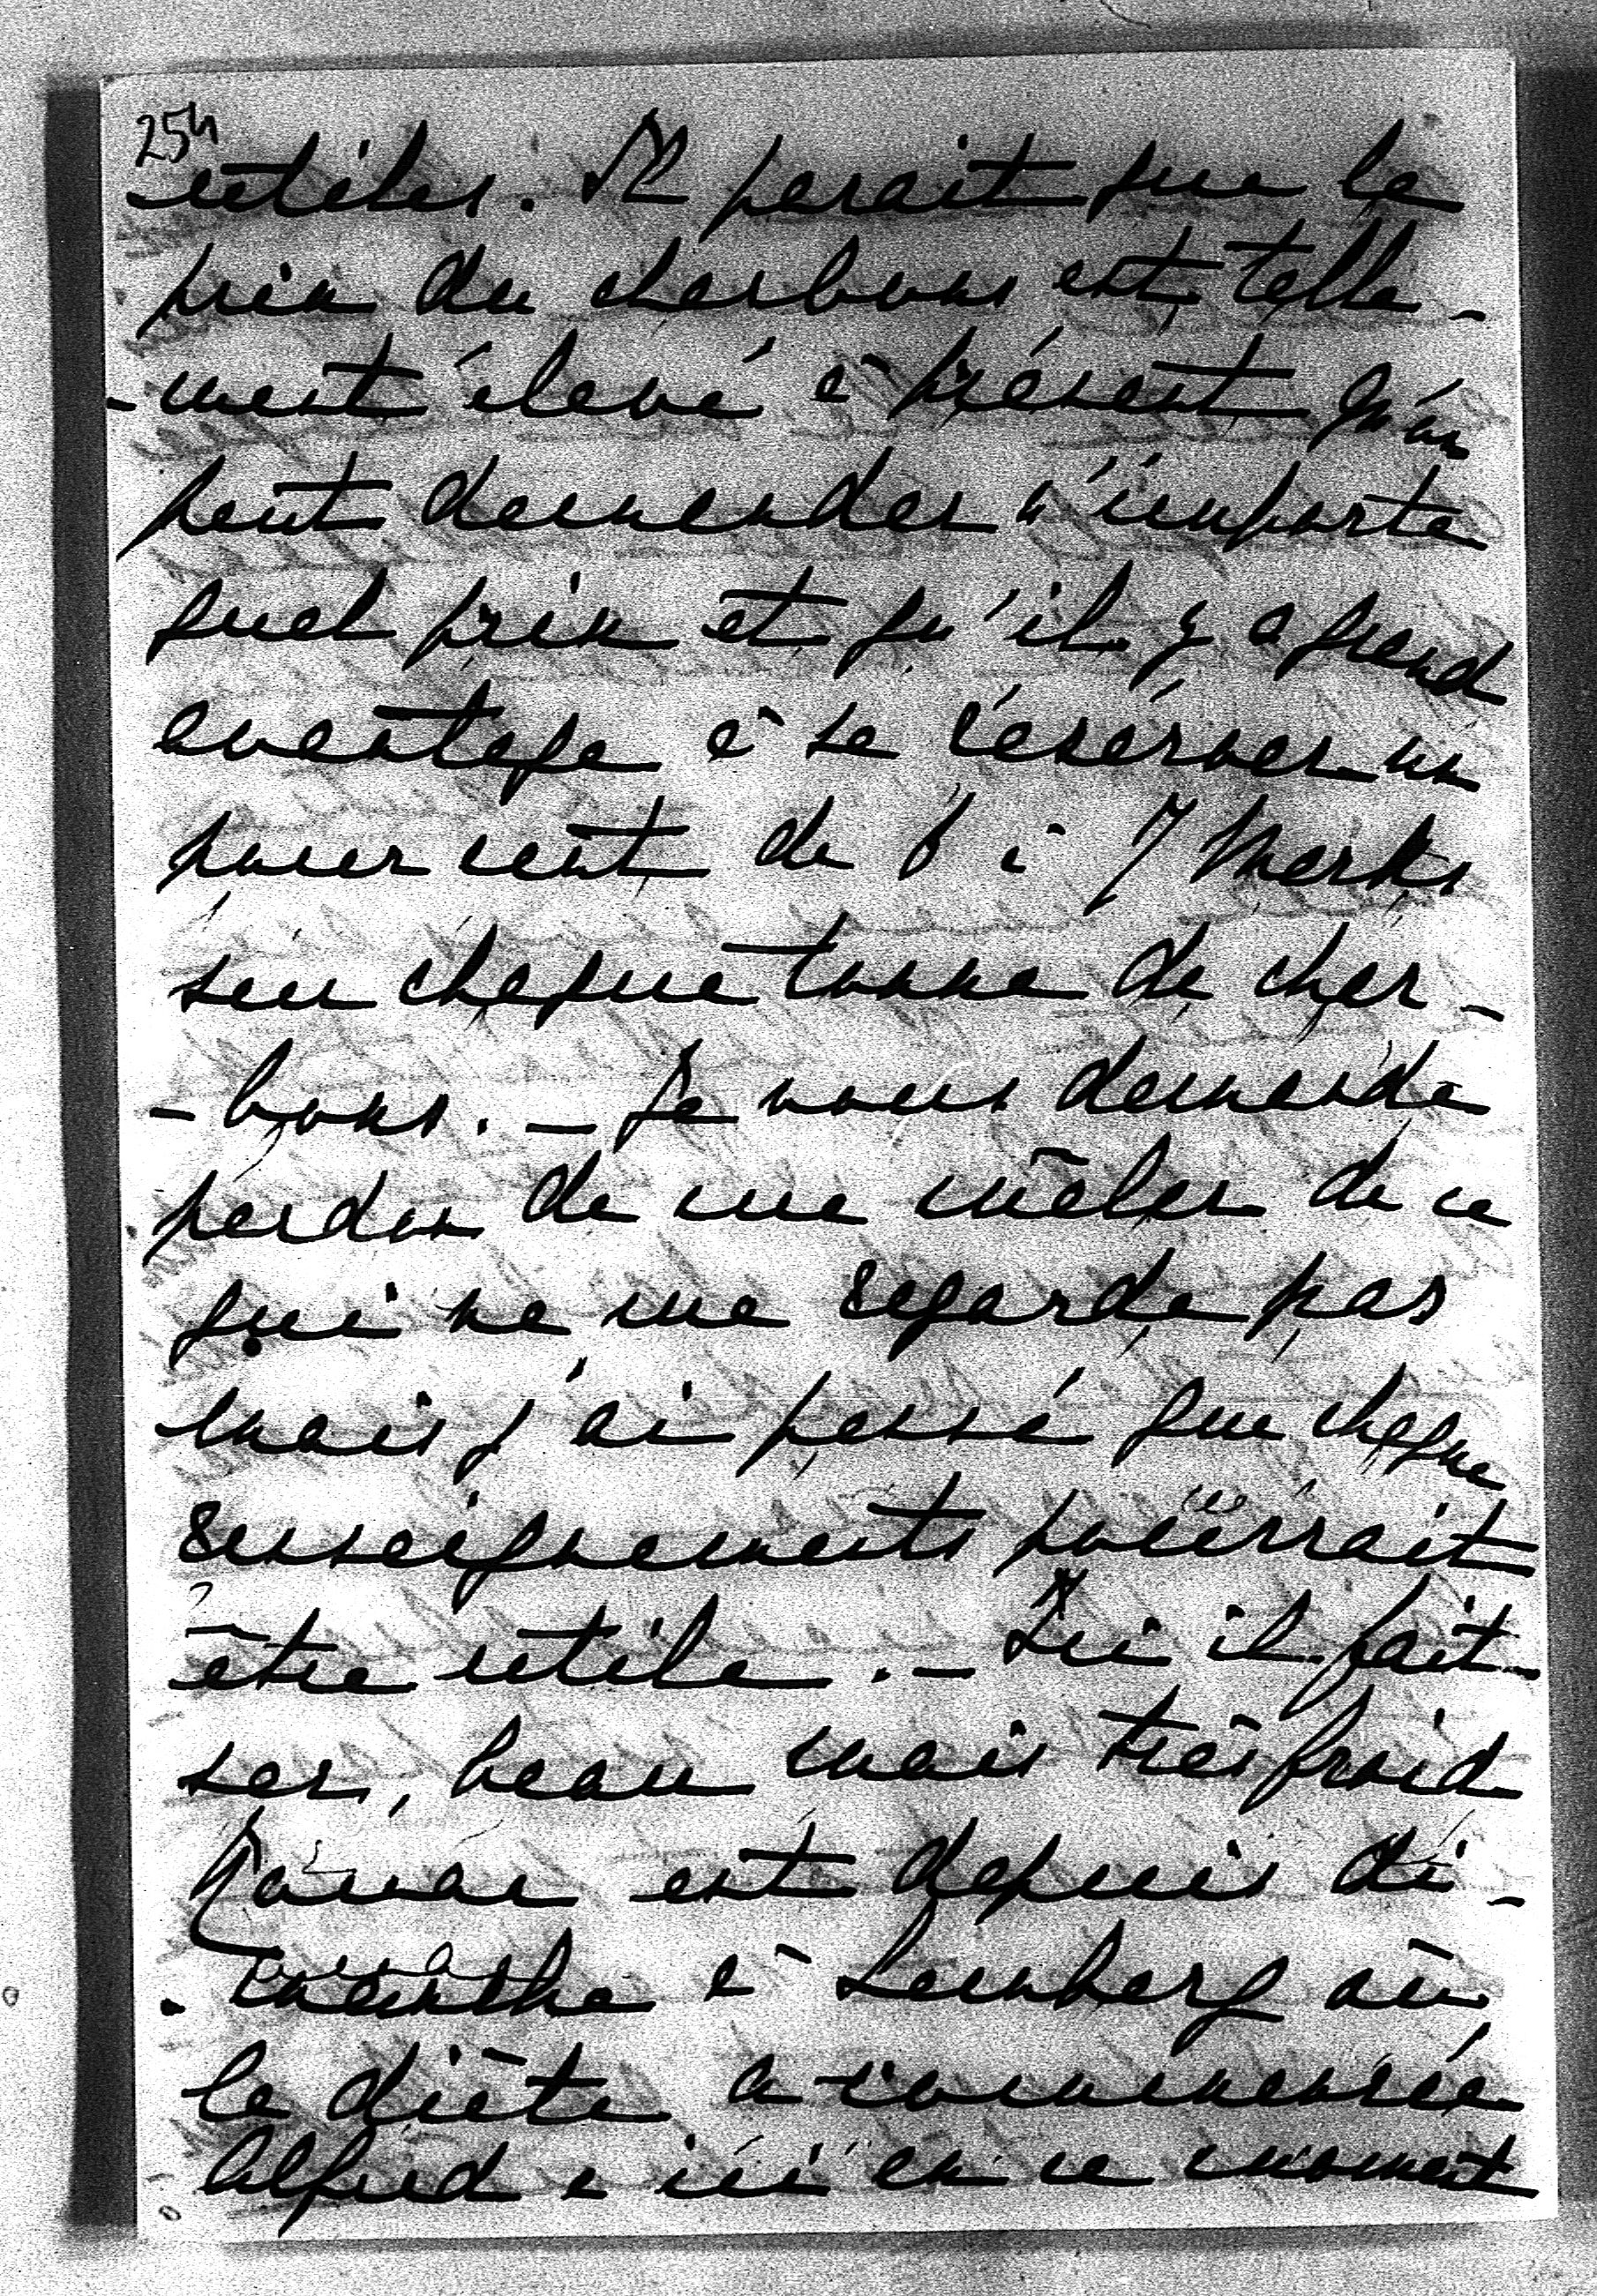 254
utiles. Il parait que le
prix du charbons est telle-
-ment élevé à présent qu'on
peut demander n'importe
quel prix et qu'il y a grand
avantage à se réserver un
pour cent de 6 à 7 Marks
sur chaque tonne de char-
-bons. - Je vous demande
pardon de me mêler de ce
qui ne me regarde pas
mais j'ai pensé que chaque
renseignements pourrait
être utile. - Ici il fait
sec, beau mais très froid
est depuis di-
-manche à Lemberg où
la diète a commencée
Alfred e ici en ce moment